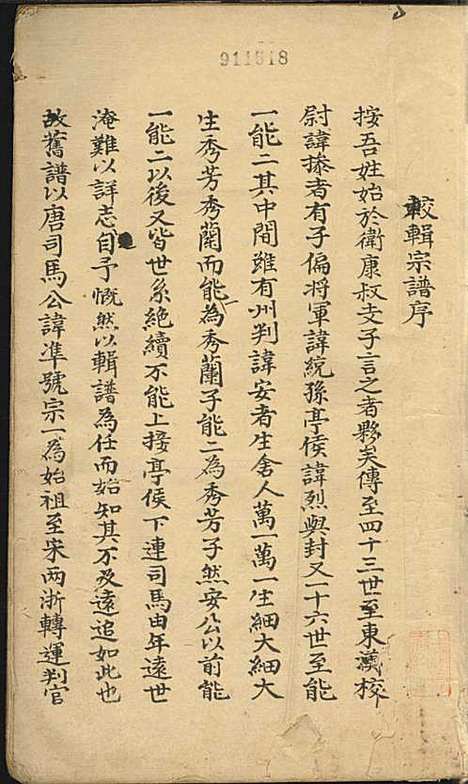 911618
較輯宗譜序
按吾姓始於衛康叔支子言之者夥矣傳至四十三世至東漢校
尉諱㨿者有子偏將軍諱統孫亭侯諱烈與封又一十六世至能
一能二其中間雖有州判諱安者生舍人萬一萬一生細大細大
生秀芳秀蘭而能一為秀蘭子能二為秀芳子然安公以前能
一能二以後又皆世系絶續不能上接亭侯下連司馬由年遠世
淹難以詳志自予慨然以輯譜為任而始知其不及遠追如此也
故舊譜以唐司馬公諱準號宗一為始祖至宋兩浙轉運判官